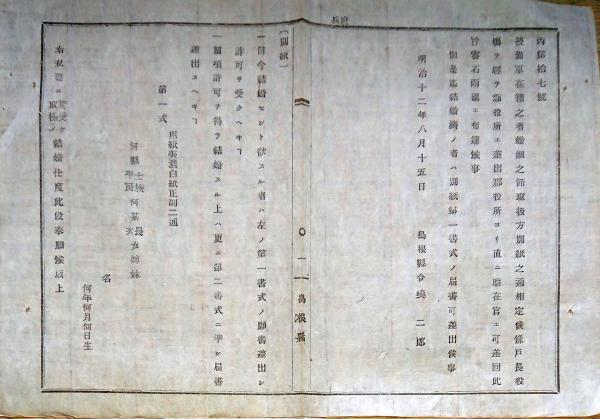 丙第拾七號
後備軍在籍之者婚姻之節取扱方別紙之通相定候條戸長役
場ヲ經テ郡役所エ差出郡役所ヨリ直ニ駐在官エ可差回此
旨管石両國エ布達候事
但是迄結婚濟ノ者ハ別紙第一書式ノ届書可差出候事
明治十二年八月十五日
島根縣令境二郎
〇一
島根縣
〔別紙〕
一自今結婚セント欲スル者ハ左ノ第一書式ノ願書差出シ
許可ヲ受クヘキヿ
一前項許可ヲ得テ結婚スル上ハ更ニ第二書式ニ準シ届書
差出スヘキヿ
第一式
用紙美濃白紙正副二通
何縣士族平民何某長次女姉妹
名
何年何月何日生
右私妻ニ貰受ケ取極メ結婚仕度此段奉願候以上